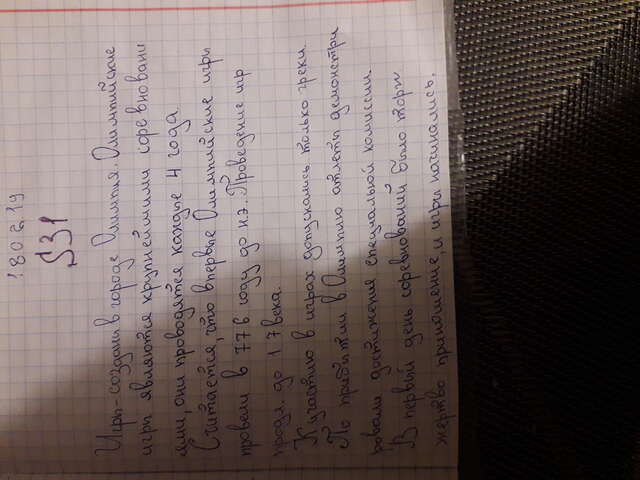 18 02 19
§31
Игры-созданы в городе Олимпия. Олимпийские
игры являются крупнейшими соревновани
ями, они проводятся каждые 4 года.
Считается, что впервые Олимпийские игры
провели в 776 году до н.э. Проведение игр
продл. до 17 века.
К участию в играх допускались только греки.
По прибытии в Олимпию атлеты демонстри
ровали достижения специальной комиссии.
В первый день соревнований было торж
жертво приношение, и игры начинались.